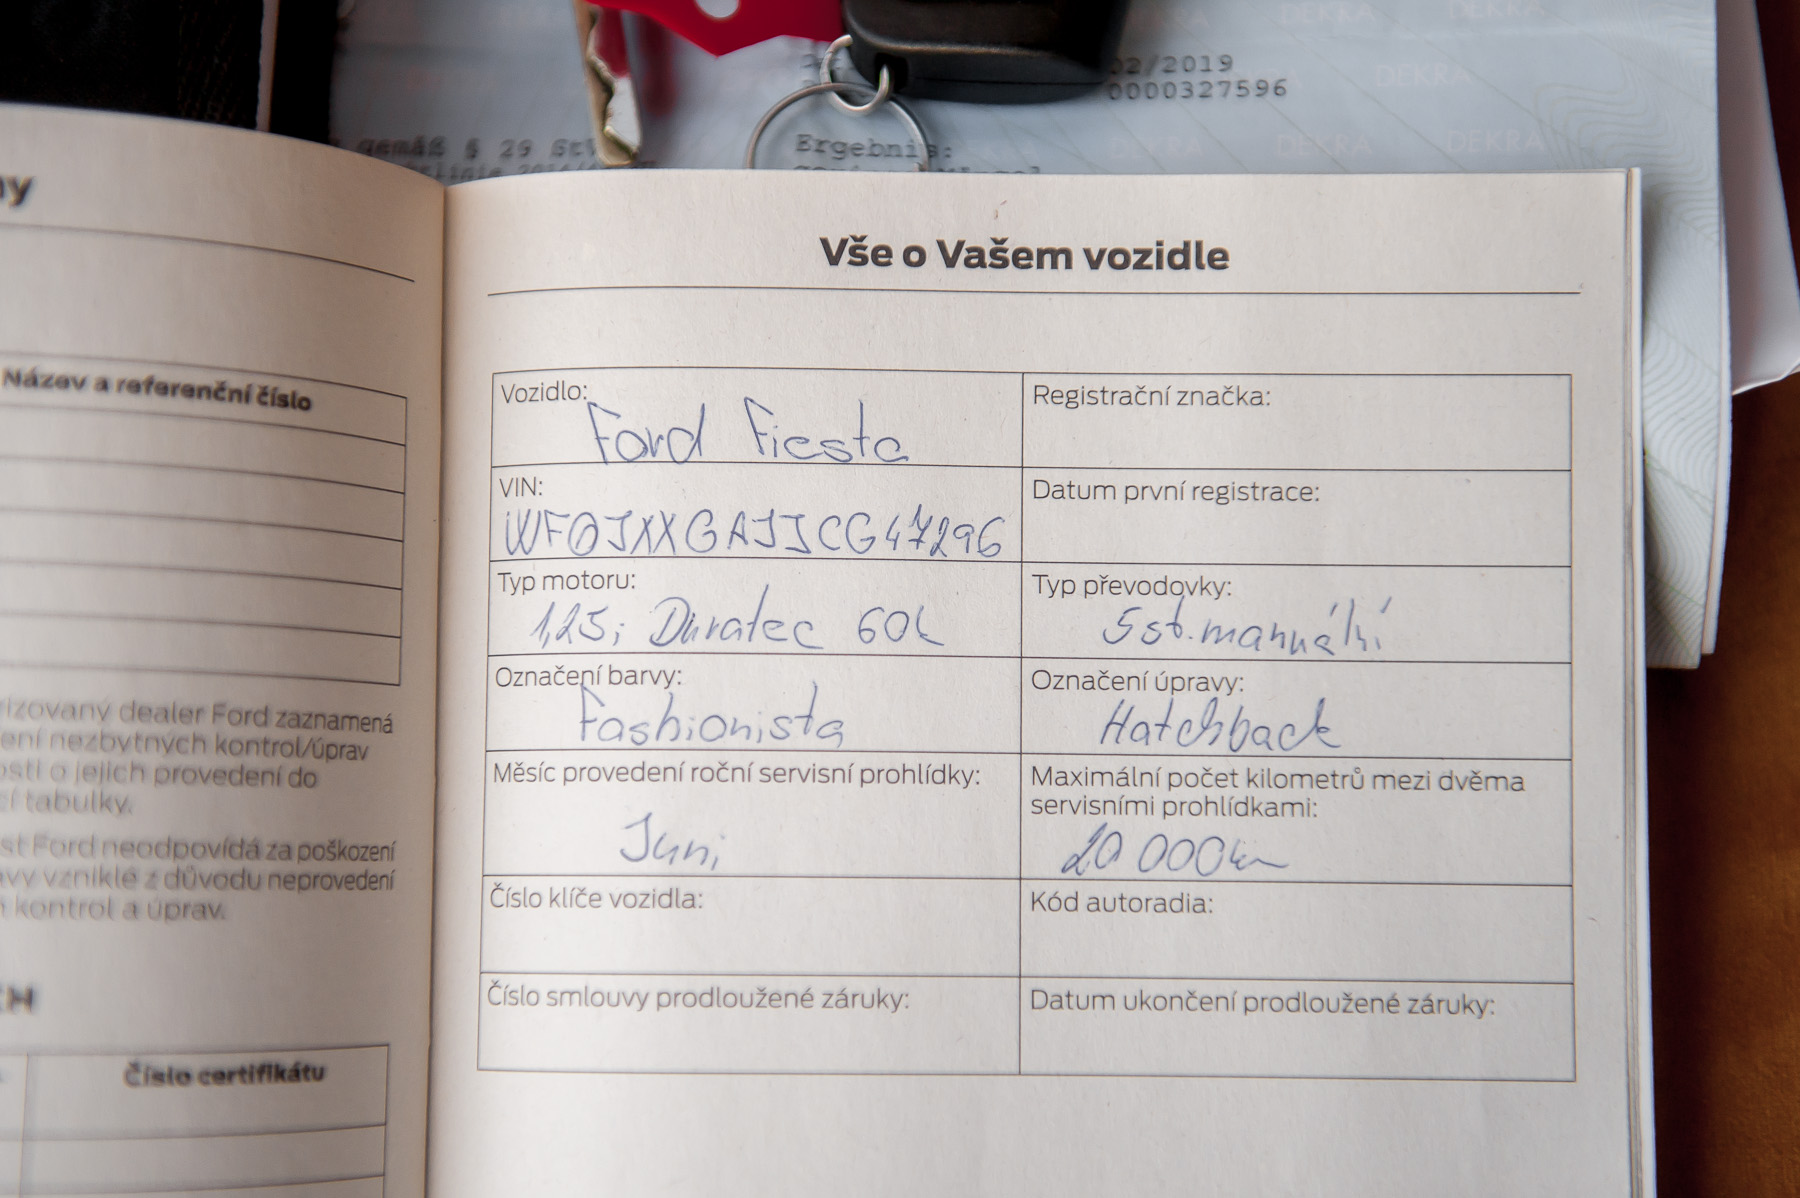 DEKRA DEKRA DEKRA
02/2019
0000327596
DEKRA
gemäß § 29
Ergebnis:
DEKRA DEKRA DEKRA
Název a referenční číslo
dealer Ford zaznamená
nezbytných kontrol/úprav
o jejich provedení do
tabulky.
Ford neodpovídá za poškození
vzniklé z důvodu neprovedení
kontrol a úprav.
Číslo certifikátu
Vše o Vašem vozidle
Vozidlo:
Ford Fiesta
Registrační značka:
VIN:
WF0JXXGAJJCG47296
Datum první registrace:
Typ motoru:
1,25i Duratec 60k
Typ převodovky:
5st. manuální
Označení barvy:
Fashionista
Označení úpravy:
Hatchback
Měsíc provedení roční servisní prohlídky:
Juni
Maximální počet kilometrů mezi dvěma
servisními prohlídkami:
20 000km
Číslo klíče vozidla:
Kód autoradia:
Číslo smlouvy prodloužené záruky:
Datum ukončení prodloužené záruky: